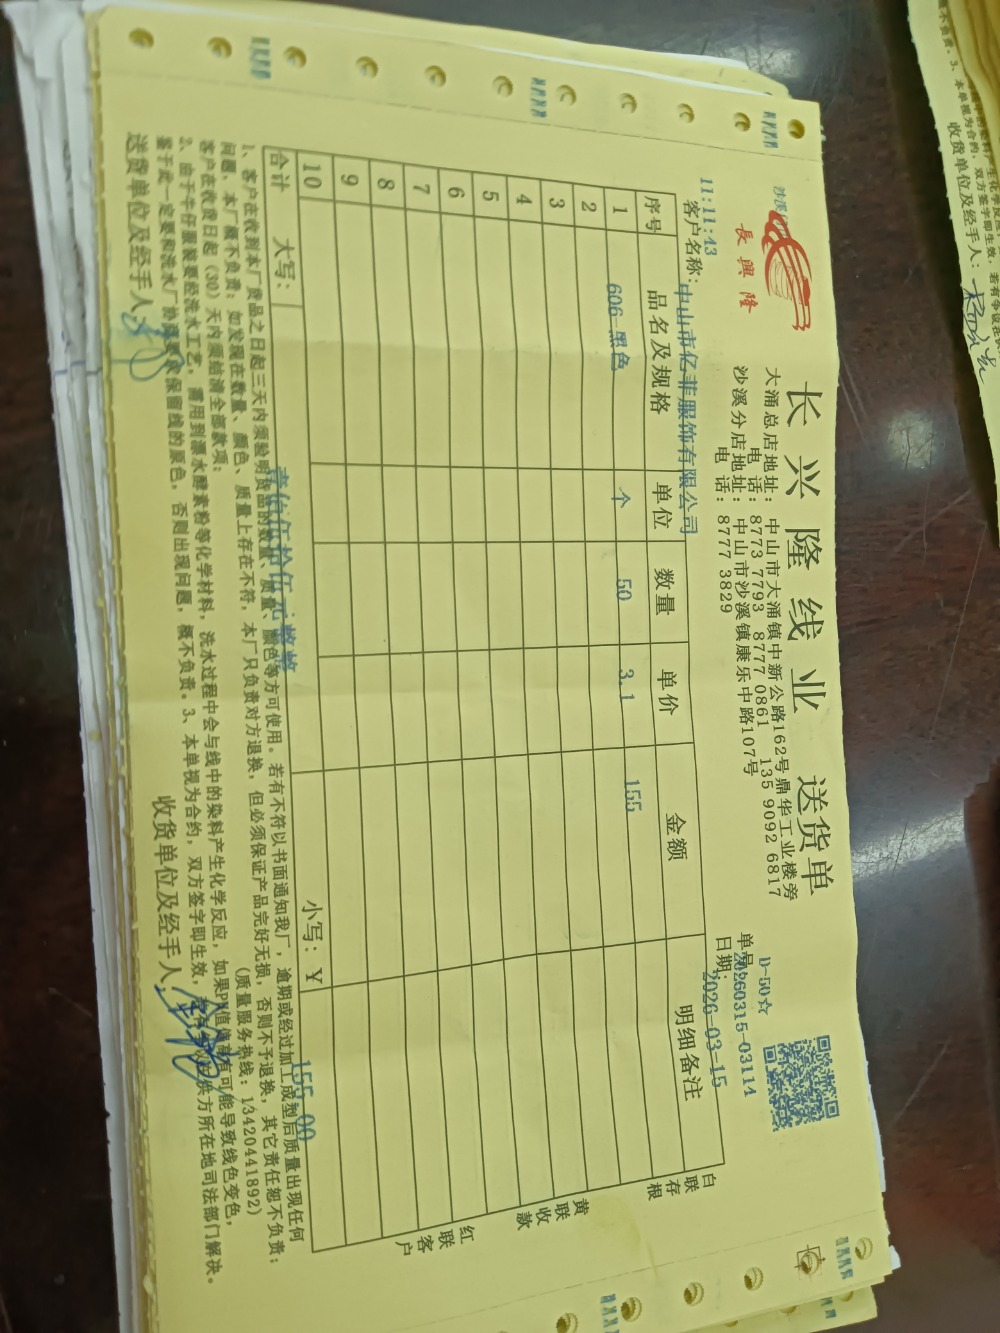 長興隆
长兴隆线业 送货单
大涌总店地址：中山市大涌镇中新公路162号鼎华工业楼旁
电话：8773 7793 8777 0861 135 9092 6817
沙溪分店地址：中山市沙溪镇康乐中路107号
电话：8777 3829
D-50☆
单号：20260315-03114
日期：2026-03-15
11:11:43
客户名称：中山市亿菲服饰有限公司
序号 品名及规格 单位 数量 单价 金额 明细备注
1 606-黑色 个 50 3.1 155
2
3
4
5
6
7
8
9
10
合计 大写：壹佰伍拾伍元整 小写：Y 155.00
白联存根
黄联收款
红联客户
1、客户在收到本厂货品之日起三天内须验明货品的数量、质量、颜色等方可使用。若有不符以书面通知我厂，逾期或经过加工成型后质量出现任何
问题，本厂概不负责；如发现在数量、颜色、质量上存在不符，本厂只负责对方退换，但必须保证产品完好无损，否则不予退换，其它责任恕不负责；
客户在收货日起（30）天内须结清全部款项；（质量服务热线：13420441892）
2、由于牛仔服装要经洗水工艺，需用到漂水酵素粉等化学材料，洗水过程中会与线中的染料产生化学反应，如果PH值偏高有可能导致线色变色，
鉴于此一定要和洗水厂协调要求保留线的原色，否则出现问题，概不负责。3、本单视为合约，双方签字即生效，若有争议在供方所在地司法部门解决。
送货单位及经手人：
收货单位及经手人：
收货单位及经手人：